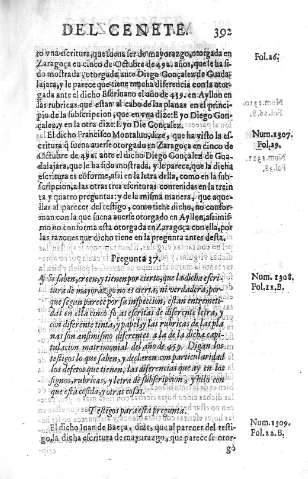 DEL CENETE. 392
to vna escritura, que suena ser de mayorazgo, otorgada en
Zaragoça en cinco de Octubre de 492. años, que le ha si-
do mostrada, otorgada ante Diego Gonçalez de Guada-
lajara, y le parece que tiene mucha diferencia con la otorgada
ante el dicho Escriuano el año de 459. en Ayllon en
las rubricas que estan al cabo de las planas en el princi-
pio de la subscripcion, que en vna dize: E yo Diego Gon-
çalez, y en la otra dize: E yo Diego Gonçalez.
El dicho Francisco Montaluo, dize, que ha visto la es-
critura q̃ suena auerse otorgado en Zaragoça en cinco de
Octubre de 492. ante el dicho Diego Gonçalez de Gua-
dalajara, que le ha sido mostrada, y le parece, que la dicha
escritura es cõforme, assi en la letra della, como en la sub-
scripcion, a las otras tres escrituras contenidas en la trein-
ta y quatro pregunta: y de la misma manera, que aque-
llas al parecer del testigo, como tiene dicho, no confor-
man con la que suena auerse otorgado en Ayllon, assi mis-
mo no conforma esta otorgada en Zaragoça con ella, por
las razones que dicho tiene en la pregunta antes desta.
Pregunta 37.
Y Si saben, creen, y tienen por cierto, que la dicha escri-
tura de mayorazgo no es cierta, ni verdadera, por-
que segun parece por su inspeccion, estan entremeti-
das en ella cinco fojas escritas de diferente letra, y
con diferente tinta, y papel, y las rubricas de las pla-
nas son ansimismo diferentes a la de la dicha capi-
tulacion matrimonial del año de 459. Digan los
testigos lo que saben, y declaren con particularidad
los defetos que tienen, las diferencias que ay en los
signos, rubricas, y letra de subscripcion, y hilo con
que está cosida, y otras cosas.
Testigos para esta pregunta.
El dicho Iuan de Baeça, dize, que al parecer del testi-
go, la dicha escritura de mayorazgo, que parece se otor-
gò
Fol.26.
Num.1307.
Fol.29.
Num. 1308.
Fol.11.B.
Num.1309.
Fol.12.B.